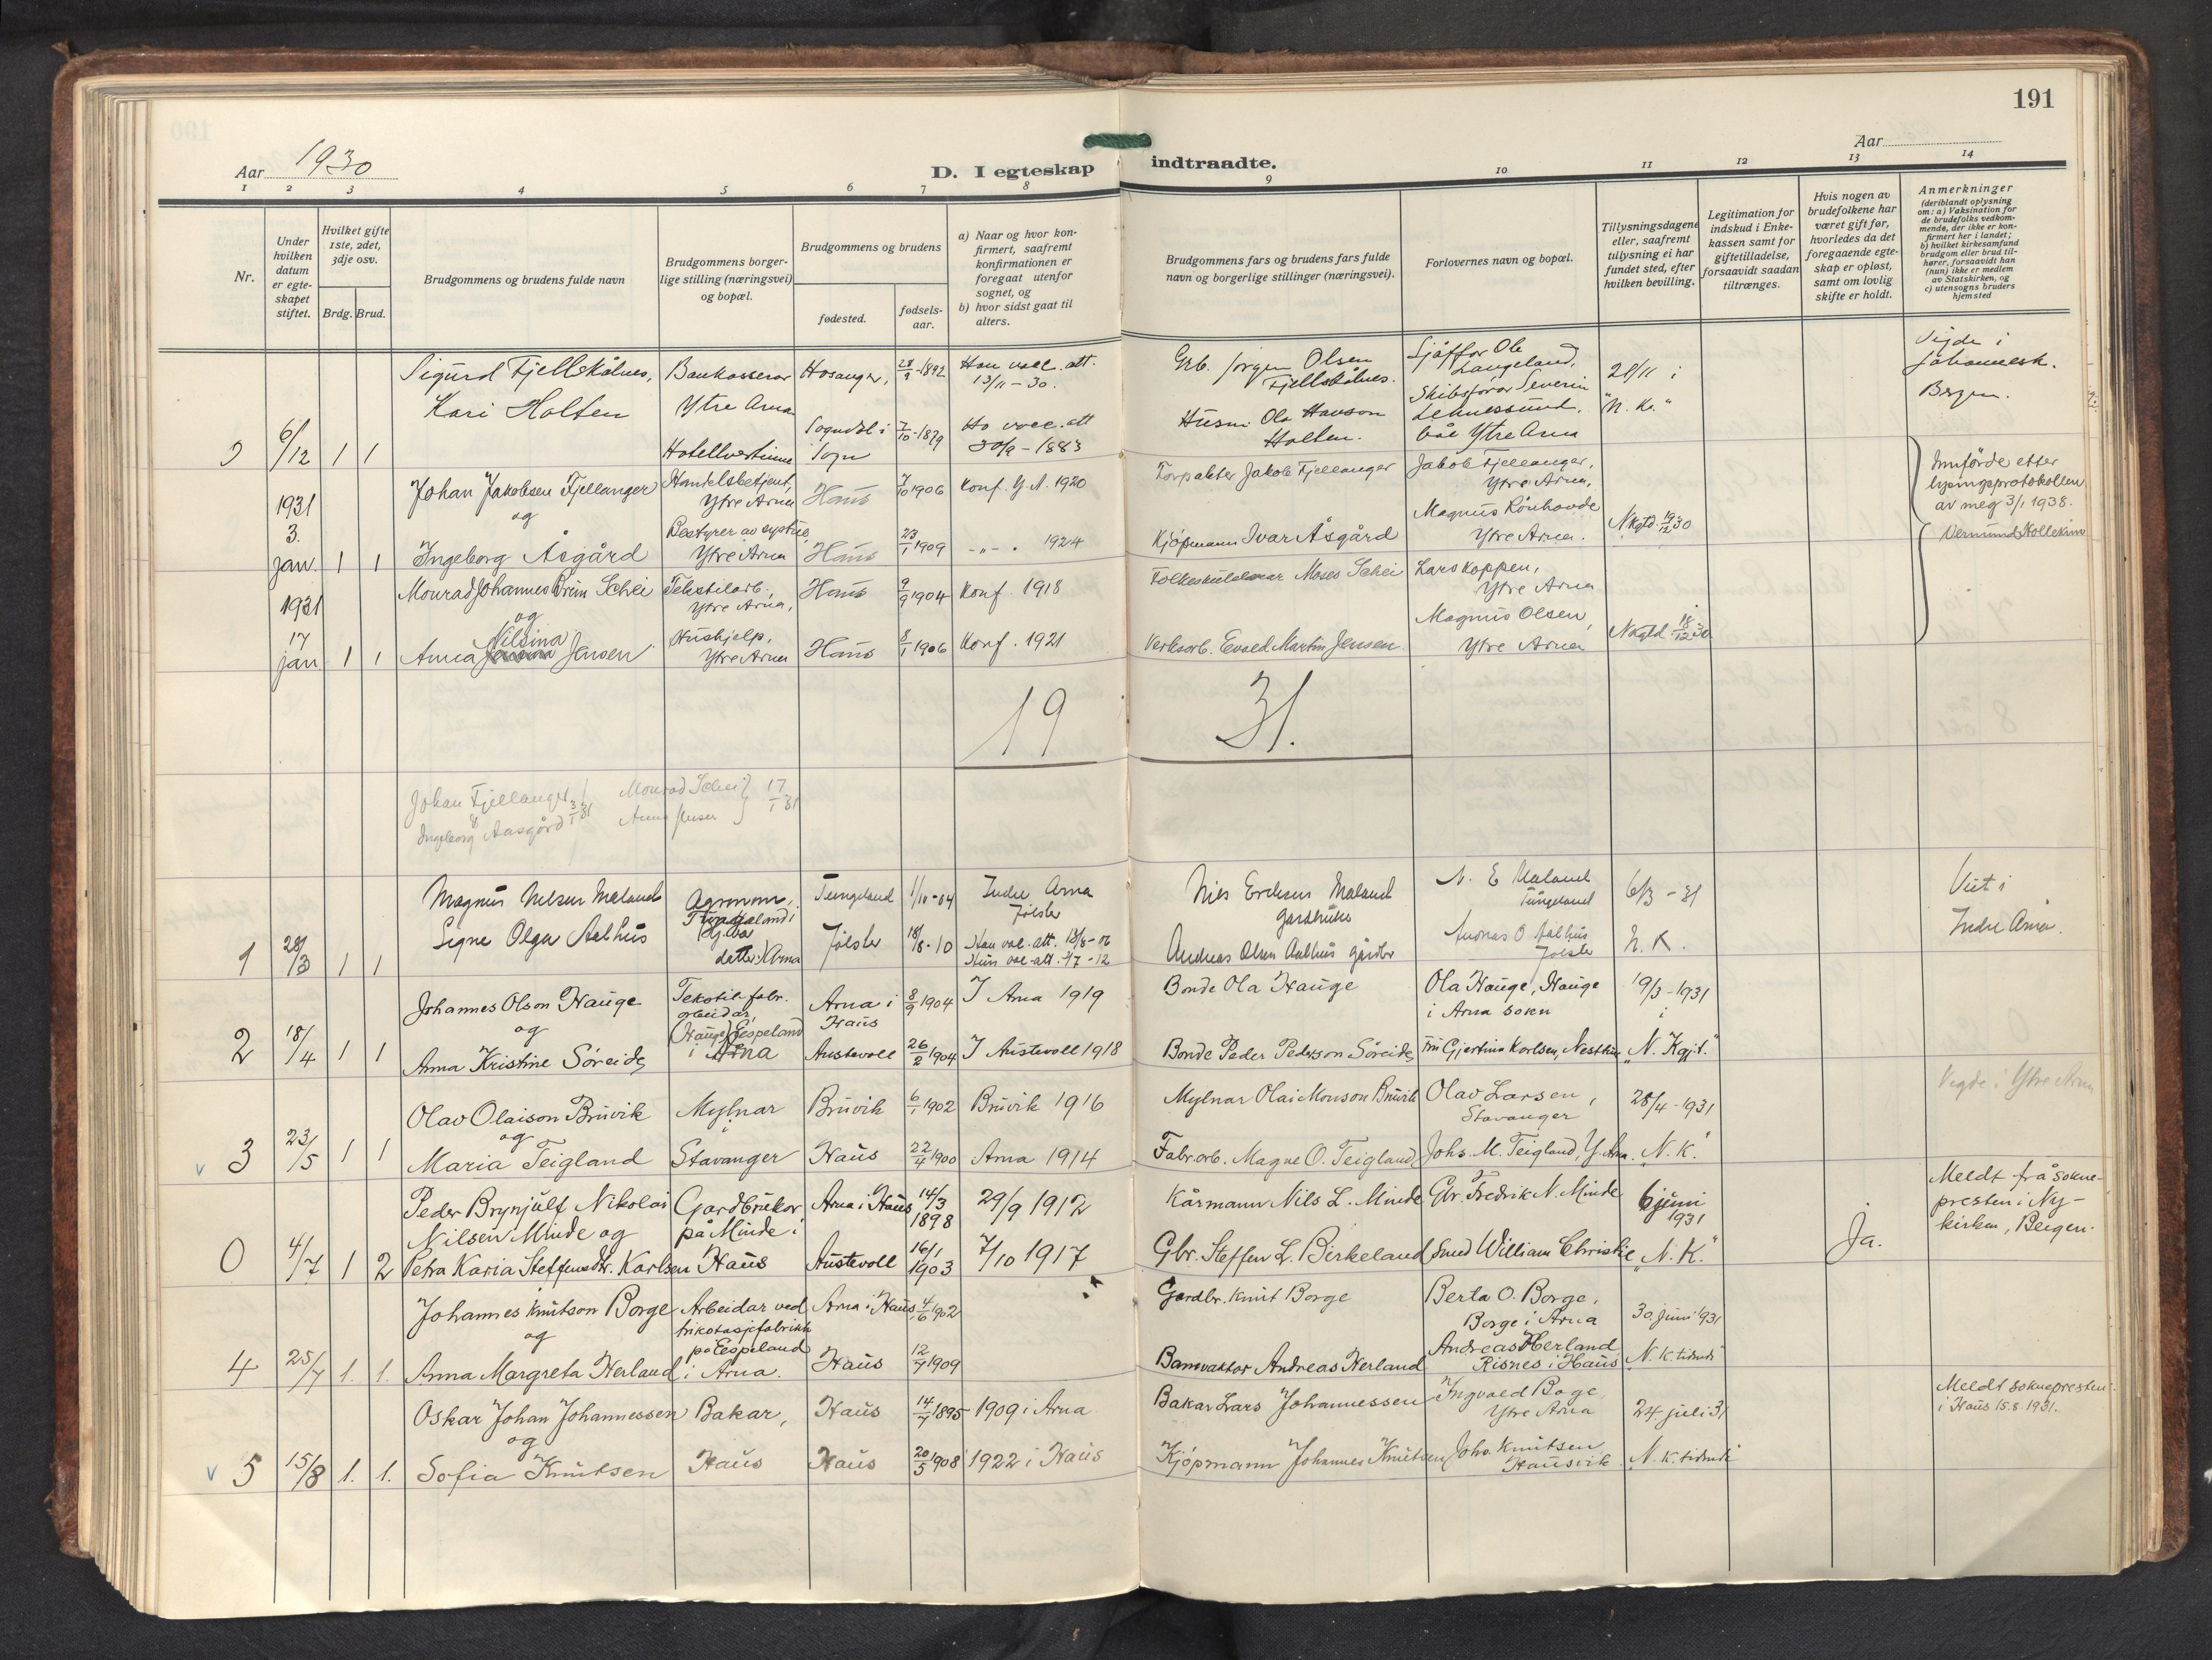 191
Aar 1930
D. I egteskap indtraadte.
Aar
1 2 3 4 5 6 7 8 9 10 11 12 13 14
Nr.
Under hvilken datum er egte-skapet stiftet.
Hvilket gifte 1ste, 2det, 3dje osv.
Brdg. Brud.
Brudgommens og brudens fulde navn
Brudgommens borger-lige stilling (næringsvei) og bopæl.
Brudgommens og brudens
fødested.
fødsels-aar.
a) Naar og hvor kon-firmert, saafremt konfirmationen er foregaat utenfor sognet, og
b) hvor sidst gaat til alters.
Brudgommens fars og brudens fars fulde navn og borgerlige stillinger (næringsvei).
Forlovernes navn og bopæl.
Tillysningsdagene eller, saafremt tillysning ei har fundet sted, efter hvilken bevilling.
Legitimation for indskud i Enke-kassen samt for giftetilladelse, forsaavidt saadan tiltrænges.
Hvis nogen av brudefolkene har været gift før, hvorledes da det foregaaende egte-skap er opløst, samt om lovlig skifte er holdt.
Anmerkninger
(deriblandt oplysning om: a) Vaksination for de brudefolks vedkom-mende, der ikke er kon-firmert her i landet; b) hvilket kirkesamfund brudgom eller brud til-hører, forsaavidt han (hun) ikke er medlem av Statskirken, og c) utensogns bruders hjemsted
6/12 1 1
Sigurd Fjellskålnes,
Kari Holten
Bankkasserar
Ytre Arna
Hotellvertinne
Hosanger, 28/9-1892
Sogndal i Sogn 7/10-1879
Han vacc. att. 13/11-30.
Ho vacc. att 30/9-1883
Grb. Jørgen Olsen Fjellskålnes.
Husm. Ola Hanson Holten.
Sjåffør Ole Langeland,
Skibsförar Severin
båe Ytre Arna
21/11 i "N. K."
Vigde i Johannesk. Bergen.
1931 3. jan. 1 1
Johan Jakobsen Fjellanger
og
Ingeborg Åsgård
Handelsbetjent, Ytre Arna
Bestyrer av systue, Ytre Arna
Haus 7/10 1906
Haus 23/1 1909
Konf. Y. A. 1920
-"- . 1924
Forpakter Jakob Fjellanger
Kjöpmann Ivar Åsgård
Jakob Fjellanger, Ytre Arna,
Magnus Rönhovde Ytre Arna.
N.kgtd. 19/12 30
Innförde etter lysingsprotokollen av meg 3/1 1938.
1931 17 jan 1 1
Monrad Johannes Brün Schei
og
Anna Nilsina Jensen
Tekstilarb., Ytre Arna,
Hushjelp, Ytre Arna
Haus 9/9 1904
Haus 8/1 1906
Konf. 1918
Konf. 1921
Folkeskulelærar Moses Schei
Verksarb. Evald Martin Jensen.
Lars Koppen, Ytre Arna
Magnus Olsen, Ytre Arna
N.kgtd. 18/12 30
19
31.
Johan Fjellanger & Ingeborg Aasgård 3/1 31
Monrad Schei Anna Jensen } 17/1 31
1 28/3 1 1
Magnus Nilsen Mæland
Signe Olga Aalhus
Agronom, Tungeland i Arna
Tungeland 1/10-04
Jölster 18/8-10
Indre Arna
Jölster
Han vac. att. 13/8-06
Hun vac-att. 4/7-12
Nils Eriksen Mæland gardbruker
Andreas Olsen Aalhus gardbr
N. E Mæland Tungeland
Andreas O Aalhus Jölster
6/3-31
N. K.
Viet i Indre Arna.
2 18/4 1 1
Johannes Olson Hauge
og
Anna Kristine Söreide
Tekstilfabr. arbeidar, (Hauge) Espeland i Arna
Arna i Haus 8/9 1904
Austevoll 26/2 1904
I Arna 1919
I Austevoll 1918
Bonde Ola Hauge
Bonde Peder Pederson Söreide
Ola Hauge, Hauge i Arna sokn
Fru Gjertine Karlsen, Nesttun
19/3-1931 i "N. Kgjt."
v 3 23/5 1 1
Olav Olaison Bruvik
og
Maria Teigland
Mylnar i Stavanger
Bruvik 6/1 1902
Haus 22/4 1900
Bruvik 1916
Arna 1914
Mylnar Olai Monson Bruvik
Fabr.arb. Magne O. Teigland
Olav Larsen, Stavanger
Johs. M. Teigland, Y. Arna.
28/4-1931
"N. K."
Vigde i Ytre Arna
0 4/7 1 2
Peder Brynjulf Nikolai Nilsen Minde og
Petra Karia Steffensdtr. Karlsen
Gardbrukar på Minde i Haus
Arna i Haus 14/3 1898
Austevoll 16/1 1903
29/9 1912
7/10 1917
Kårmann Nils L. Minde
Gbr. Steffen L. Birkeland
Gbr. Fredrik N. Minde
Smed William Christie
6 juni 1931
"N. K."
Ja.
Meldt frå sokne-presten i Ny-kirken, Bergen.
4 25/7 1. 1.
Johannes Knutson Borge
og
Anna Margreta Herland
Arbeidar ved trikotasjefabrikk på Espeland i Arna.
Arna i Haus 4/6 1902
Haus 12/9 1909
Gardbr. Knut Borge
Banevaktar Andreas Herland
Berta O. Borge, Borge i Arna
Andreas Herland Risnes i Haus
30. juni 1931
"N. K. tidende"
v 5 15/8 1. 1.
Oskar Johan Johannessen
og
Sofia Knutsen
Bakar, Haus
Haus 14/7 1895
Haus 20/5 1908
1909 i Arna
1922 i Haus
Bakar Lars Johannessen
Kjöpmann Johannes Knutsen
Ingvald Boge, Ytre Arna
Johs. Knutsen Hausvik
24. juli 31
"N. K. tidende"
Meldt soknepresten i Haus 15.8.1931.